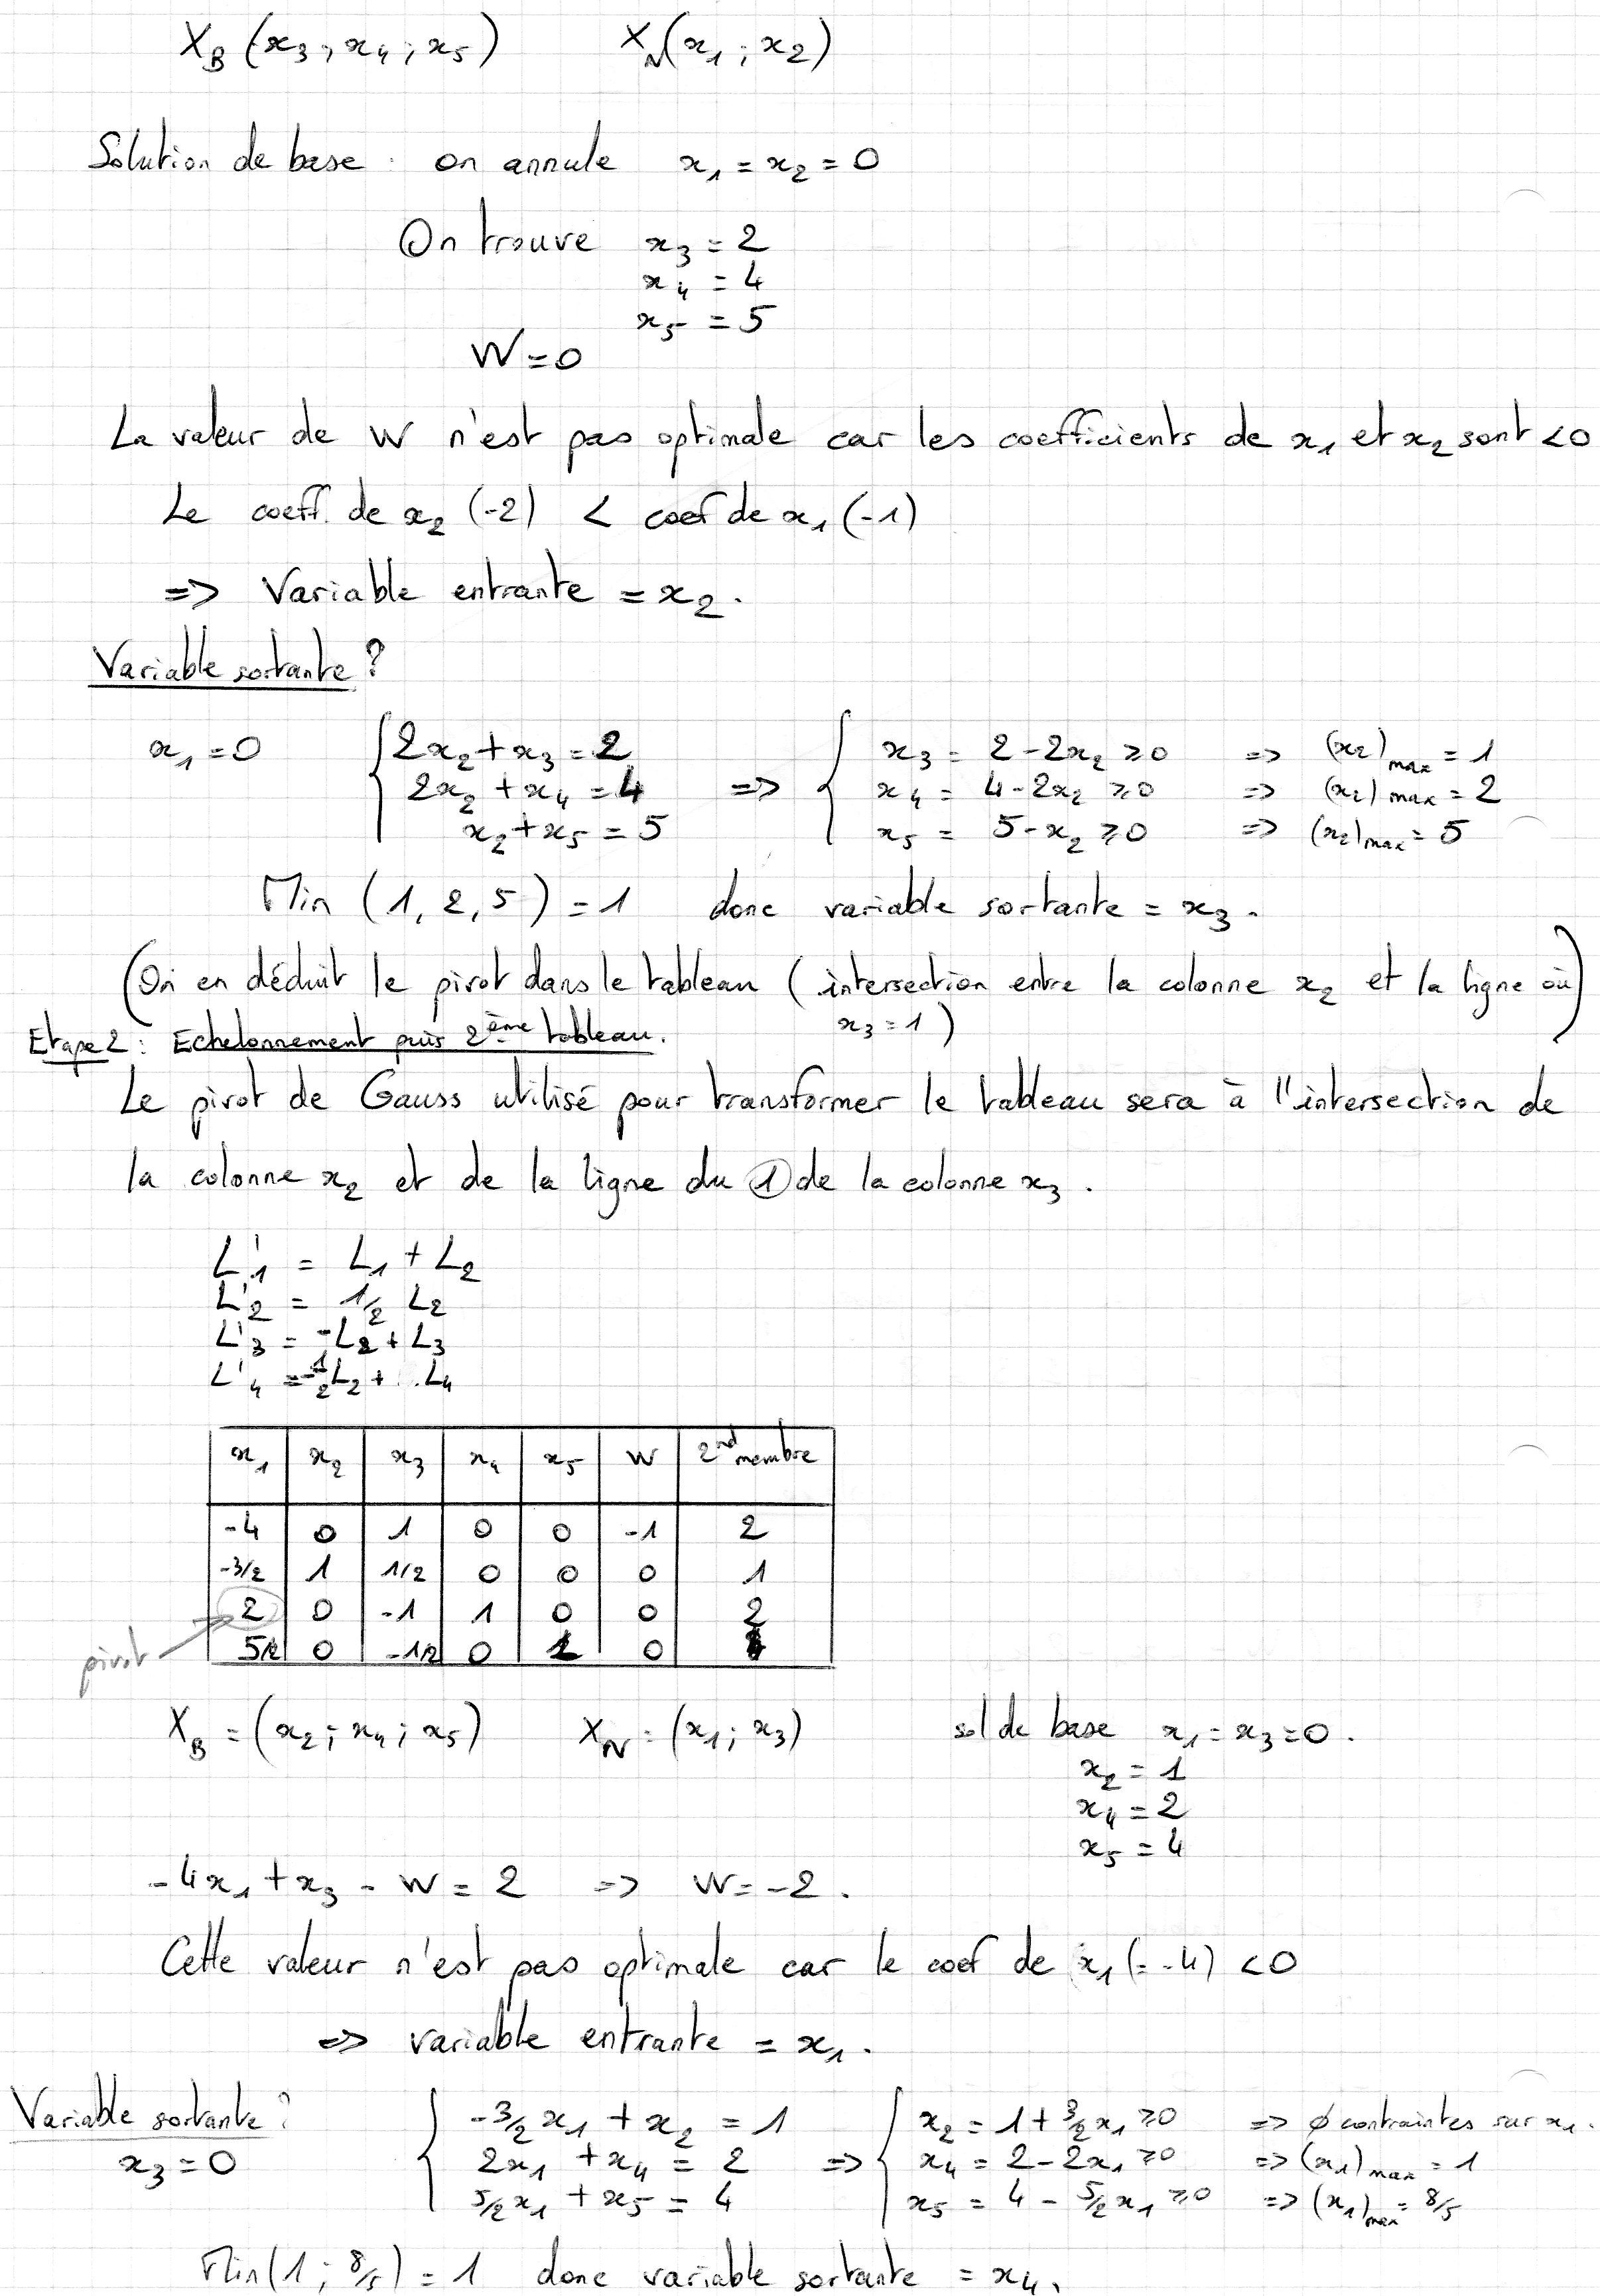 X_B (x₃ ; x₄ ; x₅) X_N (x₁ ; x₂)
Solution de base : on annule x₁ = x₂ = 0
On trouve x₃ = 2
x₄ = 4
x₅ = 5
W = 0
La valeur de W n'est pas optimale car les coefficients de x₁ et x₂ sont <0
Le coeff. de x₂ (-2) < coef de x₁ (-1)
=> Variable entrante = x₂.
Variable sortante ?
x₁ = 0 { 2x₂ + x₃ = 2 => { x₃ = 2 - 2x₂ ≥ 0 => (x₂)max = 1
2x₂ + x₄ = 4 x₄ = 4 - 2x₂ ≥ 0 => (x₂)max = 2
x₂ + x₅ = 5 x₅ = 5 - x₂ ≥ 0 => (x₂)max = 5
Min (1, 2, 5) = 1 donc variable sortante = x₃.
(On en déduit le pivot dans le tableau (intersection entre la colonne x₂ et la ligne où
x₃ = 1))
Etape 2 : Echelonnement puis 2ème tableau.
Le pivot de Gauss utilisé pour transformer le tableau sera à l'intersection de
la colonne x₂ et de la ligne du ① de la colonne x₃.
L'₁ = L₁ + L₂
L'₂ = 1/2 L₂
L'₃ = -L₂ + L₃
L'₄ = -1/2 L₂ + L₄
x₁ x₂ x₃ x₄ x₅ W 2nd membre
-4 0 1 0 0 -1 2
-3/2 1 1/2 0 0 0 1
2 0 -1 1 0 0 2
5/2 0 -1/2 0 1 0
pivot
X_B = (x₂ ; x₄ ; x₅) X_N = (x₁ ; x₃) sol de base x₁ = x₃ = 0.
x₂ = 1
x₄ = 2
x₅ = 4
-4x₁ + x₃ - W = 2 => W = -2.
Cette valeur n'est pas optimale car le coef de x₁ (= -4) <0
=> variable entrante = x₁.
Variable sortante ? { -3/2 x₁ + x₂ = 1 => { x₂ = 1 + 3/2 x₁ ≥ 0 => ∅ contraintes sur x₁.
x₃ = 0 2x₁ + x₄ = 2 x₄ = 2 - 2x₁ ≥ 0 => (x₁)max = 1
5/2 x₁ + x₅ = 4 x₅ = 4 - 5/2 x₁ ≥ 0 => (x₁)max = 8/5
Min (1 ; 8/5) = 1 donc variable sortante = x₄.